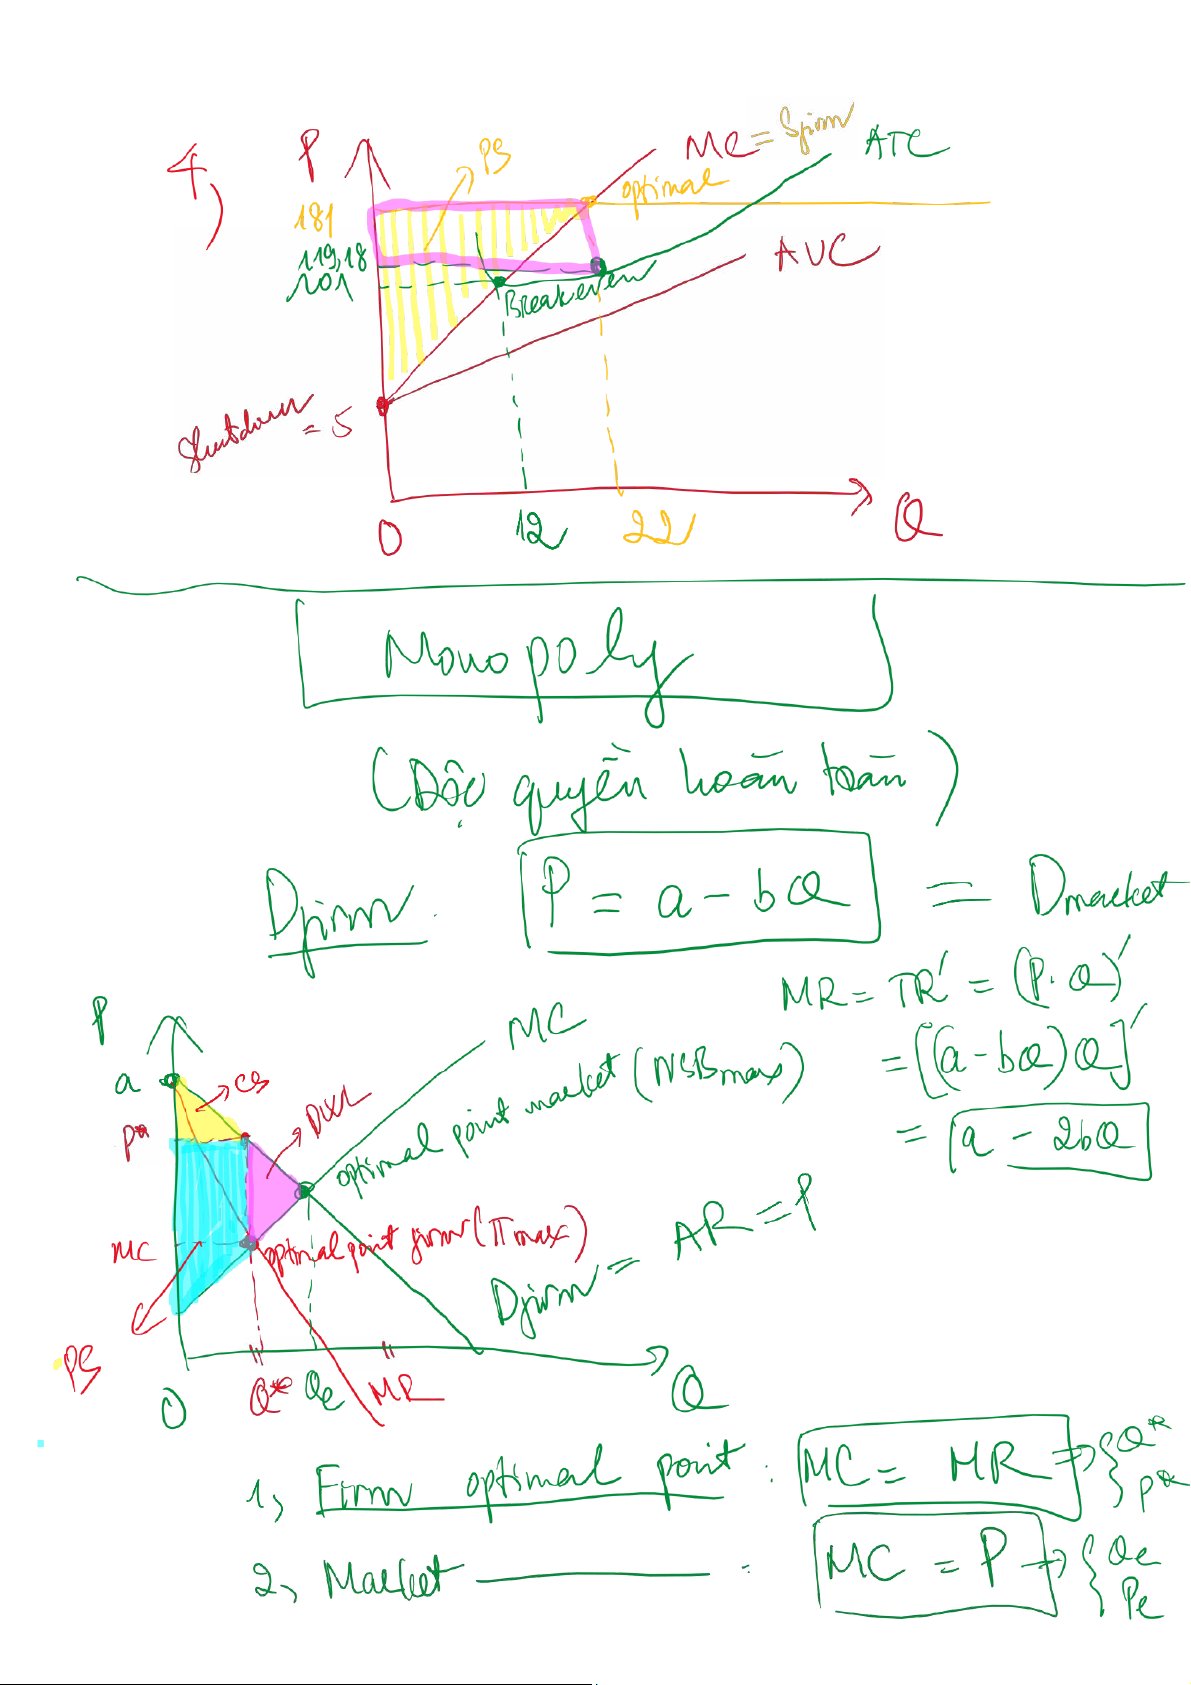 4)
P
181
119,18
101
PS
MC = Sfirm
ATC
optimal
AVC
Breakeven
Shutdown = 5
0
12
22
Q
Monopoly
(Độc quyền hoàn toàn)
Dfirm
P = a - bQ = Dmarket
MR = TR' = (P.Q)'
= [(a-bQ)Q]'
= a - 2bQ
P
a
CS
P*
DWL
MC
optimal point market (NSBmax)
MC
optimal point firm (πmax)
Dfirm = AR = P
PS
0
Q*
Qe
MR
Q
1, Firm optimal point : MC = MR → { Q* P*
2, Market : MC = P → { Qe Pe